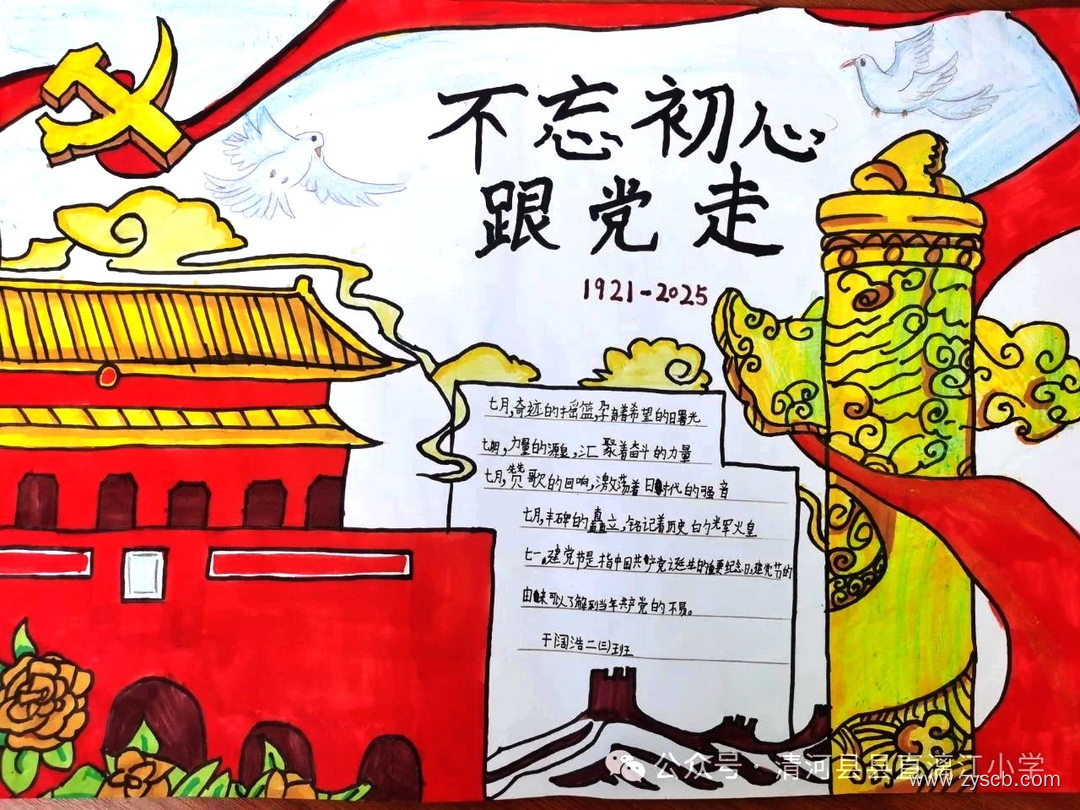 不忘初心
跟党走
1921-2025
七月,奇迹的摇篮,孕育着希望的日曙光
七月,力量的源泉,汇聚着奋斗的力量
七月,赞歌的回响,激荡着日时代的强音
七月,丰碑的矗立,铭记着历史的光辉火皇
七一建党节是指中国共产党诞生的重要纪念日,建党节的
由来可以了解到当年共产党的不易。
于阔浩二(三)班
公众号·清河县县直漓江小学
www.zyscb.com